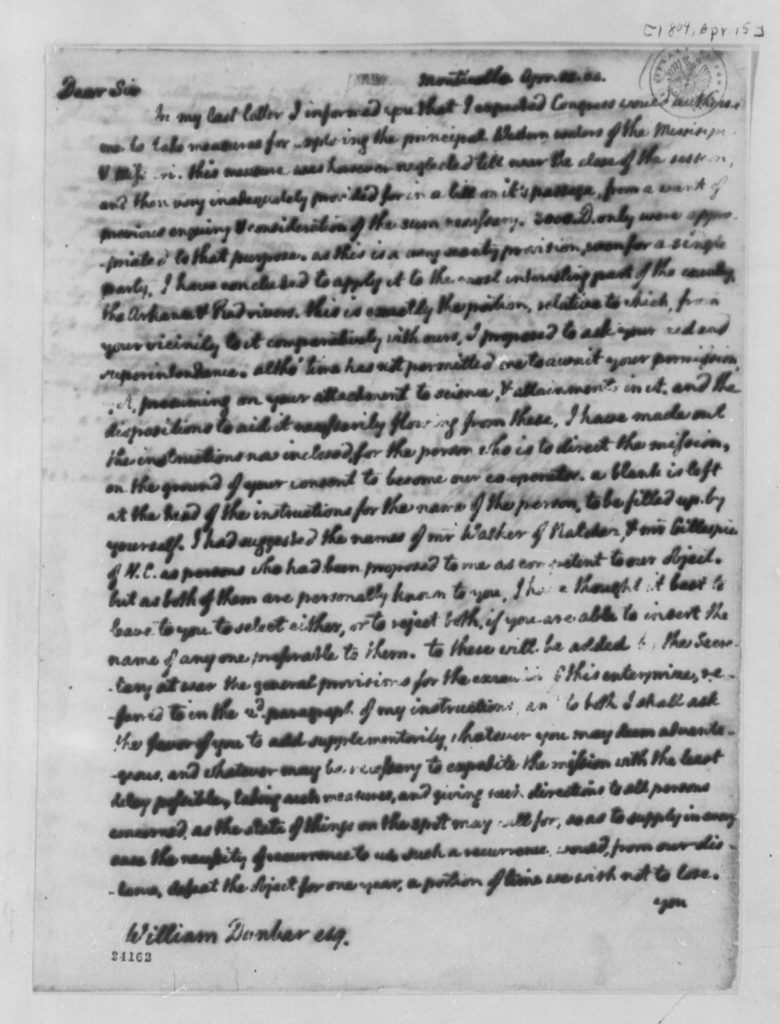 [1804, Apr. 15]
Dear Sir Monticello Apr. 15. 04.
In my last letter I informed you that I expected Congress would authorise
me to take measures for exploring the principal Western waters of the Missisipi
& Missouri. this measure was however neglected till near the close of the session,
and then very inadequately provided for in a bill on it's passage, from a want of
previous enquiry & consideration of the sum necessary. 2000.D. only were appro-
-priated to that purpose. as this is a very scanty provision, even for a single
party, I have concluded to apply it to the most interesting part of the country,
the Arkansa & Red rivers. this is exactly the portion, relative to which, from
your vicinity to it comparatively with ours, I proposed to ask your aid and
superintendance. altho' time has not permitted me to await your permission
presuming on your attachment to science, & attainments in it, and the
dispositions to aid it necessarily flowing from these, I have made out
the instructions now inclosed, for the person who is to direct the mission,
on the ground of your consent to become our co-operator. a blank is left
at the head of the instructions for the name of the person, to be filled up by
yourself. I had suggested the names of mr Walker of Natchez, & mr Gillespie
of N.C. as persons who had been proposed to me as competent to our object.
but as both of them are personally known to you, I have thought it best to
leave to you to select either, or to reject both, if you are able to insert the
name of any one preferable to them. to these will be added by the Secre-
-tary at war the general provisions for the execution of this enterprize, re-
-ferred to in the 2d. paragraph of my instructions, and to both I shall ask
the favor of you to add supplementorily, whatever you may deem advanta-
-geous, and whatever may be necessary to expedite the mission with the least
delay possible, taking such measures, and giving such directions to all persons
concerned, as the state of things on the spot may call for, so as to supply in every
case the necessity of recurrence to us such a recurrence would, from our dis-
-tance, defeat the object for one year, a portion of time we wish not to lose.
you
William Dunbar esq.
24162